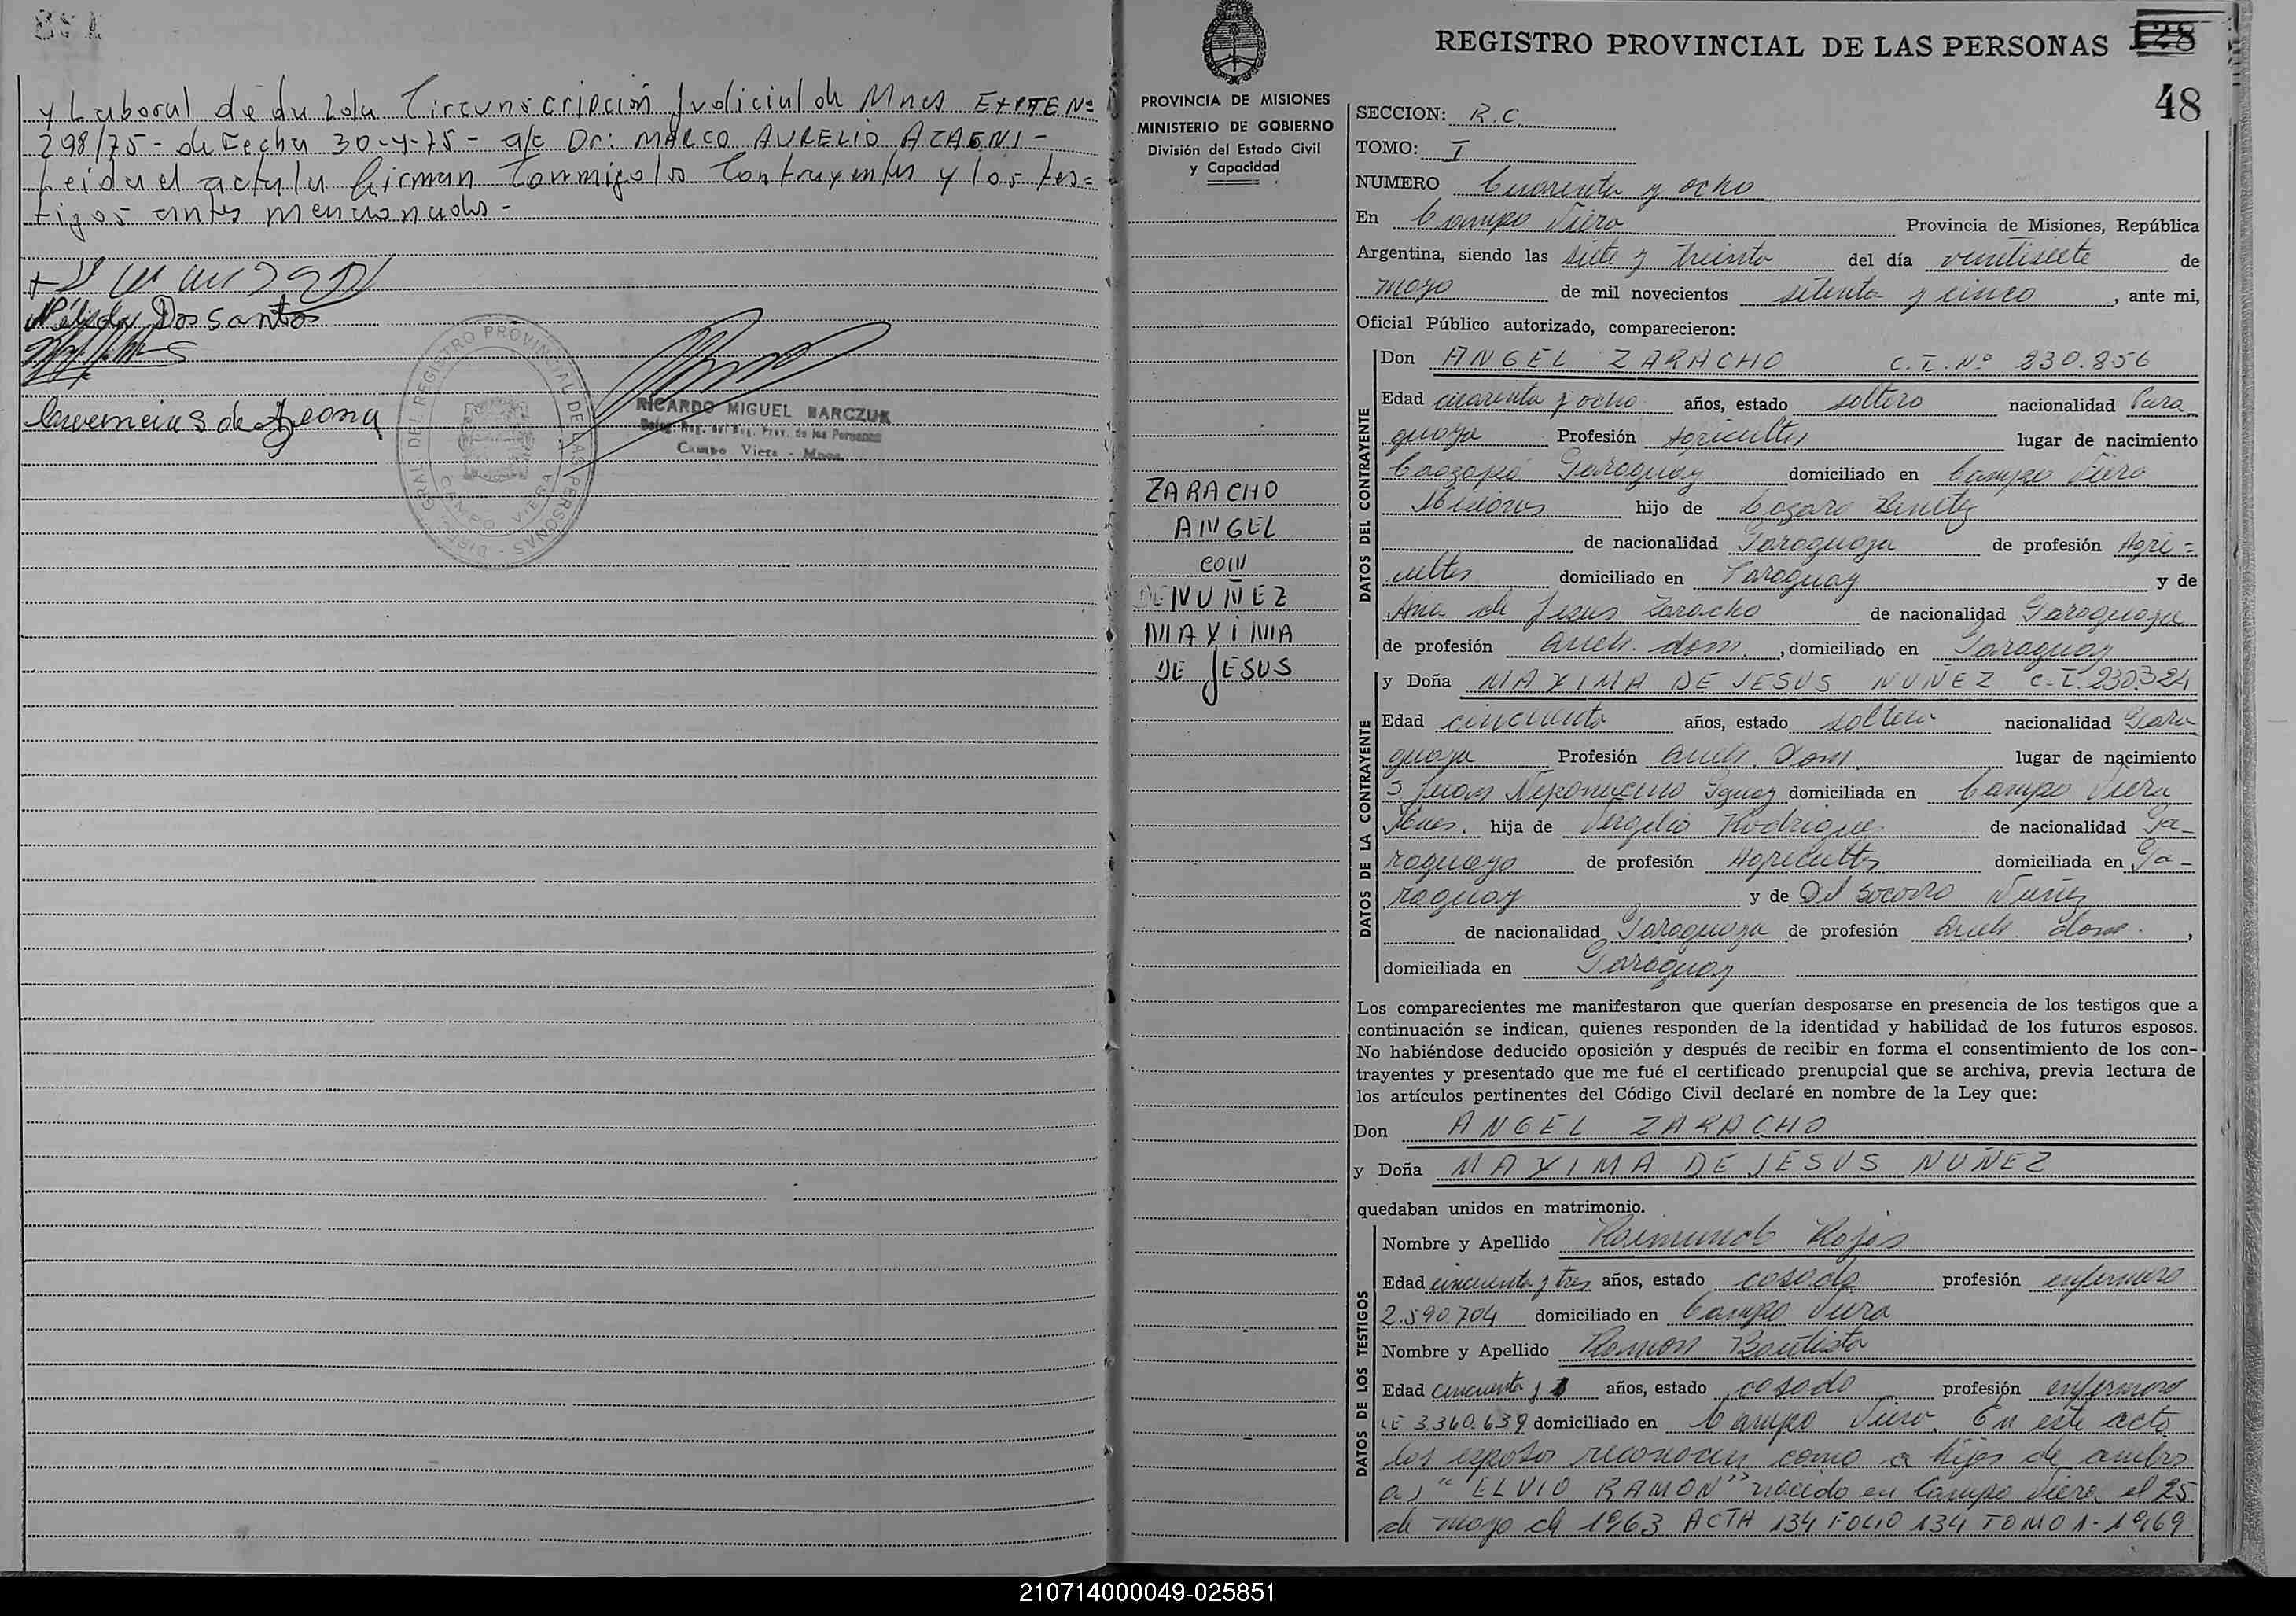 y Laboral de du 2da Circunscripción Judicial de Mnes EXPTE Nº
298/75 - de Fecha 30-4-75 - a/c Dr: MARCO AURELIO
Leida el acta la firman Conmigo los Contrayentes y los tes=
tigos antes mencionados -
Nélida Dos Santos
RICARDO MIGUEL MARCZUK
Deleg. Reg. del Reg. Prov. de las Personas
Campo Viera - Mnes.
DIREC. GRAL DEL REGISTRO PROVINCIAL DE LAS PERSONAS -
CAMPO VIERA
REGISTRO PROVINCIAL DE LAS PERSONAS 128
48
PROVINCIA DE MISIONES
MINISTERIO DE GOBIERNO
División del Estado Civil
y Capacidad
ZARACHO
ANGEL
CON
DE NUÑEZ
MAXIMA
DE JESUS
SECCION: R.C.
TOMO: I
NUMERO Cuarenta y ocho
En Campo Viera Provincia de Misiones, República
Argentina, siendo las siete y treinta del día ventisiete de
mayo de mil novecientos setenta y cinco, ante mi,
Oficial Público autorizado, comparecieron:
DATOS DEL CONTRAYENTE
Don ANGEL ZARACHO C.I. Nº 230.856
Edad cuarenta y ocho años, estado soltero nacionalidad Para_
guaya Profesión Agricultor lugar de nacimiento
Caazapá Paraguay domiciliado en Campo Viera
Misiones hijo de Lazaro Benitez
de nacionalidad Paraguaya de profesión Agri=
cultor domiciliado en Paraguay y de
Ana de Jesus Zaracho de nacionalidad Paraguaya
de profesión Queh. dom., domiciliado en Paraguay
DATOS DE LA CONTRAYENTE
y Doña MAXIMA DE JESUS NUÑEZ C.I. 230.324
Edad cincuenta años, estado soltera nacionalidad Para
guaya Profesión Queh. Dom. lugar de nacimiento
S Juan Nepomuceno Pguay domiciliada en Campo Viera
Mnes. hija de Virgilio Rodrigues de nacionalidad Pa_
raguayo de profesión Agricultor domiciliada en Pa_
raguay y de Del Socorro Nuñez
de nacionalidad Paraguaya de profesión Queh. dom.,
domiciliada en Paraguay
Los comparecientes me manifestaron que querían desposarse en presencia de los testigos que a
continuación se indican, quienes responden de la identidad y habilidad de los futuros esposos.
No habiéndose deducido oposición y después de recibir en forma el consentimiento de los con-
trayentes y presentado que me fué el certificado prenupcial que se archiva, previa lectura de
los artículos pertinentes del Código Civil declaré en nombre de la Ley que:
Don ANGEL ZARACHO
y Doña MAXIMA DE JESUS NUÑEZ
quedaban unidos en matrimonio.
DATOS DE LOS TESTIGOS
Nombre y Apellido Raimundo Rojas
Edad cincuenta y tres años, estado casado profesión enfermero
2.590.704 domiciliado en Campo Viera
Nombre y Apellido Ramon Bautista
Edad cincuenta y años, estado casado profesión enfermero
LE 3.360.639 domiciliado en Campo Viera. En este acto
los esposos reconocen como a hijos de ambos
a) "ELVIO RAMON" nacido en Campo Viera el 25
de mayo de 1963 ACTA 134 FOLIO 134 TOMO 1-1969
210714000049-025851